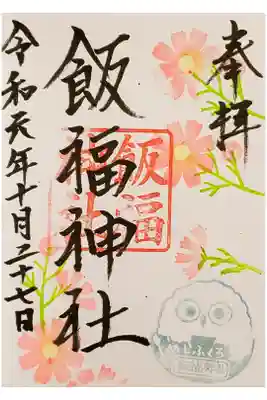 奉拝
飯福神社
飯福
令和元年十月二十七日